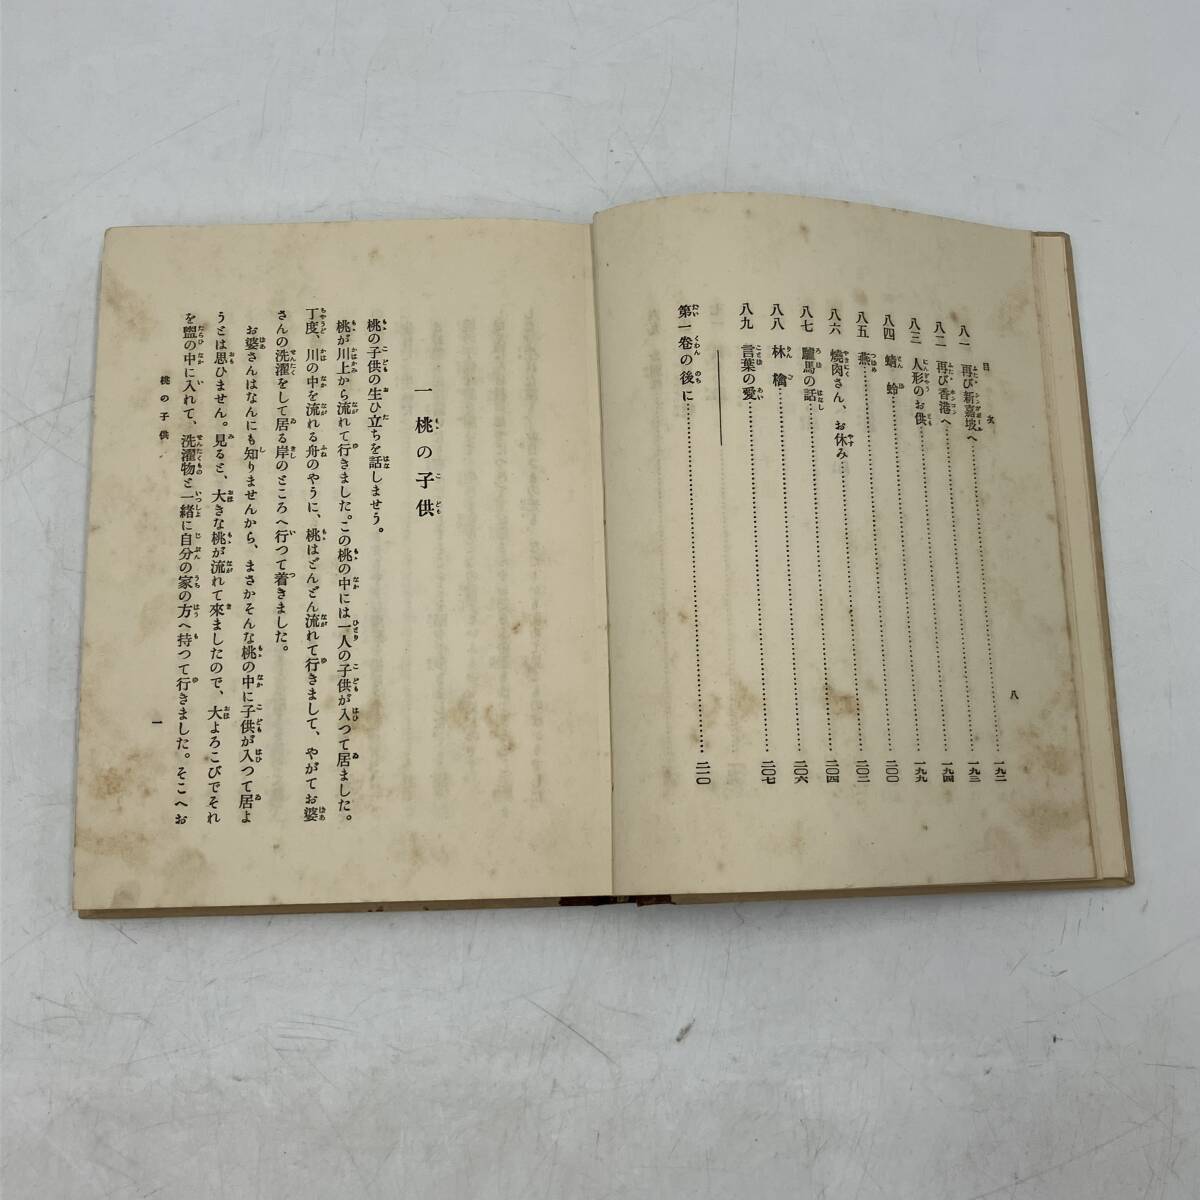 目次
八
八一 再び新嘉坡へ……一九二
八二 再び香港へ……一九三
八三 人形のお供……一九四
八四 蜻蛉……一九九
八五 燕……二〇〇
八六 燒肉さん、お休み……二〇二
八七 驢馬の話……二〇四
八八 林檎……二〇六
八九 言葉の愛……二〇七
第一卷の後に……二一〇
一 桃の子供
桃の子供の生ひ立ちを話しませう。
桃が川上から流れて行きました。この桃の中には一人の子供が入つて居ました。
丁度、川の中を流れる舟のやうに、桃はどんどん流れて行きまして、やがてお婆
さんの洗濯をして居る岸のところへ行つて着きました。
お婆さんはなんにも知りませんから、まさかそんな桃の中に子供が入つて居よ
うとは思ひません。見ると、大きな桃が流れて來ましたので、大よろこびでそれ
を盥の中に入れて、洗濯物と一緒に自分の家の方へ持つて行きました。そこへお
桃の子供
一